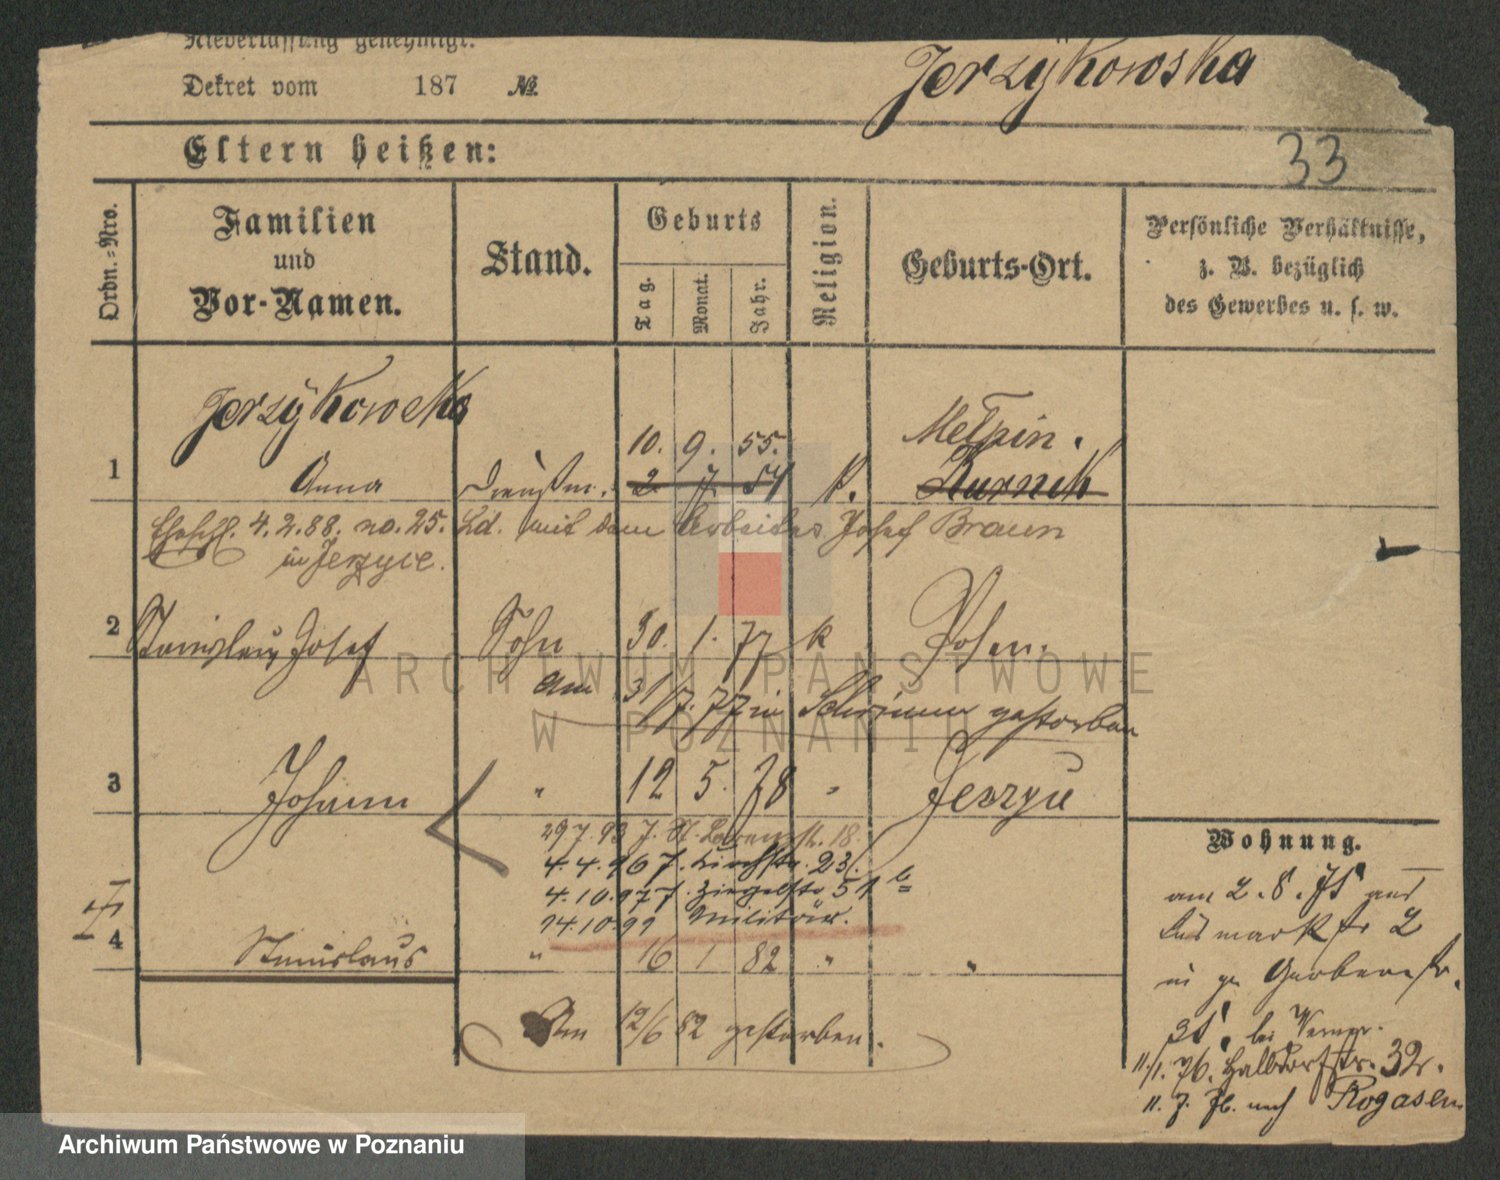 Niederlassung genehmigt.
Dekret vom 187 №
Jerzÿkowska
33
Eltern heißen:
Ordn.-Nro.
Familien
und
Vor-Namen.
Stand.
Geburts
Tag.
Monat.
Jahr.
Religion.
Geburts-Ort.
Persönliche Verhältnisse,
z. B. bezüglich
des Gewerbes u. s. w.
Jerzÿkowska
10. 9. 55. Melpin.
1 Anna Dienstm. 2 7 54 k. Kurnik
Eheschl. 4.2.88. no. 25. Ld. mit dem Arbeiter Josef Braun
in Jerzyce.
2 Stanislaus Josef Sohn 30. 1. 77 k Posen.
am 31/7. 77 in Schrimm gestorben
3 Johann " 12 5. 78 " Jerzyce
29.7.93 J. St. Lazarusstr. 18.
4.4.96 J. Kirchstr. 23/
4.10.97 J. Ziegelstr. 51 b
14.10.99 Militär.
4 Stanislaus " 16 1 82 " "
Am 12/6 82 gestorben.
Wohnung.
am 2.8.75 aus
Bismarkstr 2
in gr Gerberstr.
bei Werner.
11/1. 76. Halbdorfstr. 32.
11. 7. 76. nach Rogasen
ARCHIWUM PAŃSTWOWE
W POZNANIU
Archiwum Państwowe w Poznaniu